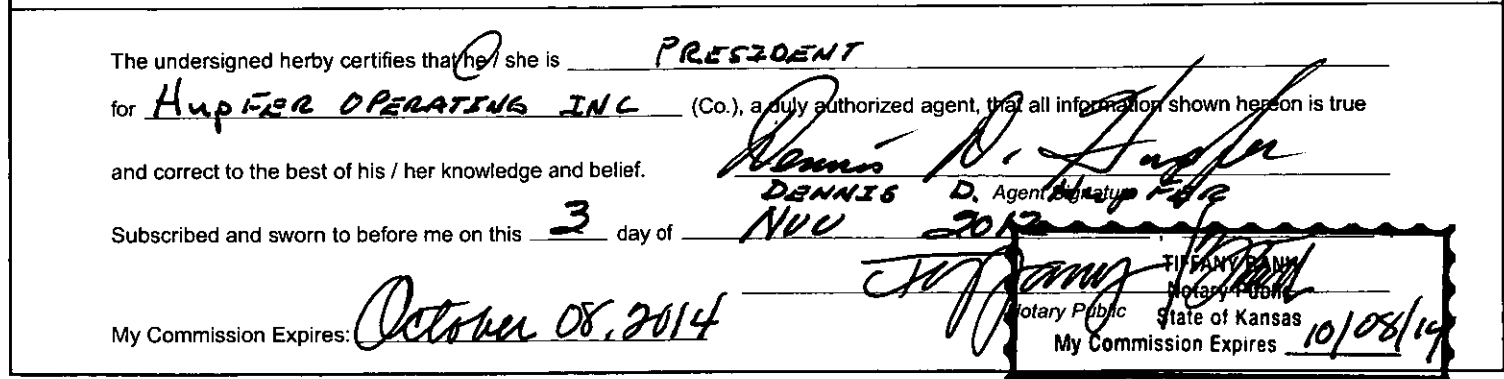 The undersigned herby certifies that he / she is PRESIDENT
for HupFER OPERATING INC (Co.), a duly authorized agent, that all information shown hereon is true
and correct to the best of his / her knowledge and belief. Dennis D. Hupfer
DENNIS D. HupFER
Agent Signature
Subscribed and sworn to before me on this 3 day of NOV 2012
Tiffany Rank
Notary Public
My Commission Expires: October 08, 2014
TIFFANY RANK
Notary Public
State of Kansas
My Commission Expires 10/08/14